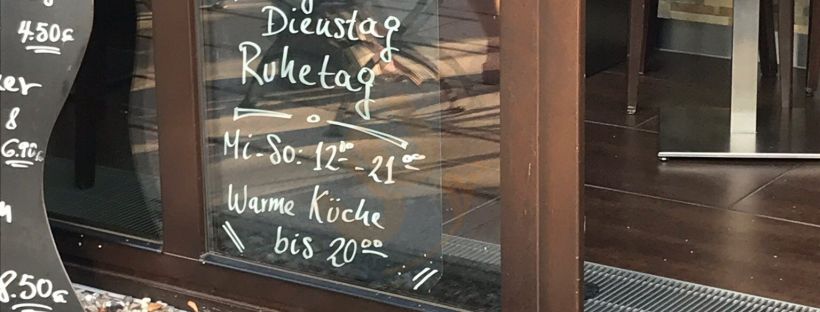 4.50€
8
6.90€
8.50€
Dienstag
Ruhetag
Mi-So: 12⁰⁰-21⁰⁰
Warme Köche
bis 20⁰⁰